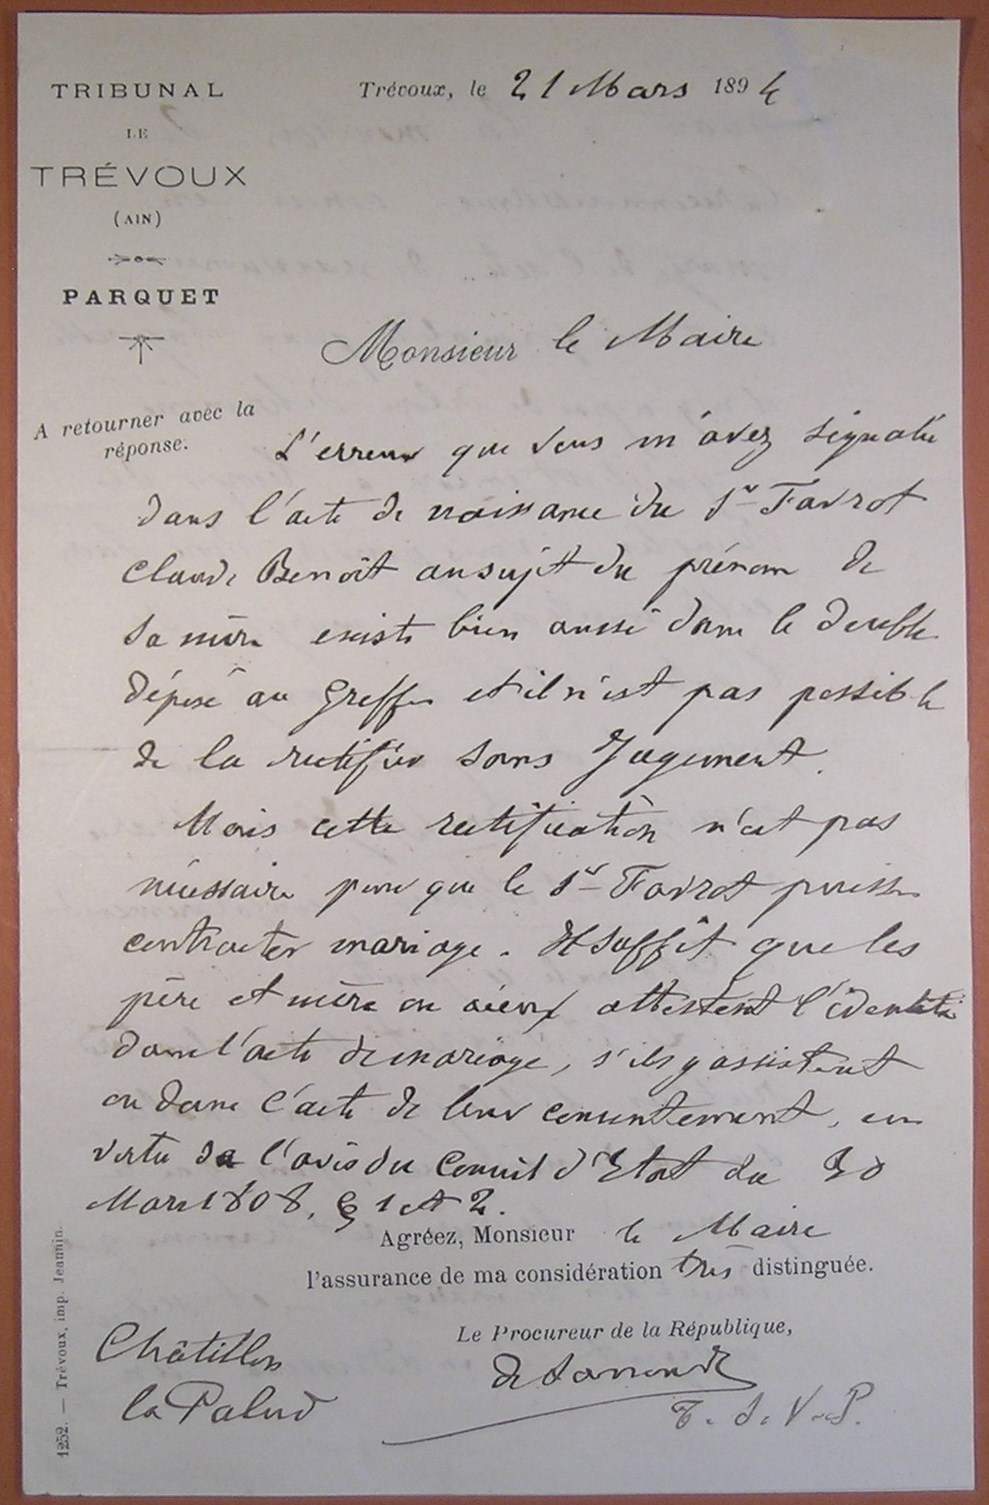 TRIBUNAL
LE
TRÉVOUX
(AIN)
PARQUET
A retourner avec la
réponse.
Trévoux, le 21 Mars 1894
Monsieur le Maire
L'erreur que vous m'avez signalée
dans l'acte de naissance du Sr Favrot
Claude Benoît au sujet du prénom de
sa mère existe bien aussi dans le double
déposé au Greffe et il n'est pas possible
de la rectifier sans Jugement.
Mais cette rectification n'est pas
nécessaire pour que le Sr Favrot puisse
contracter mariage. Il suffit que les
père et mère ou aïeux attestent l'identité
dans l'acte de mariage, s'ils y assistent
ou dans l'acte de leur consentement, en
vertu de l'avis du Conseil d'Etat du 30
Mars 1808, § 1 et 2.
Agréez, Monsieur le Maire
l'assurance de ma considération très distinguée.
Le Procureur de la République,
Châtillon
la Palud
T. S. V. P.
1252. — Trévoux, imp. Jeannin.